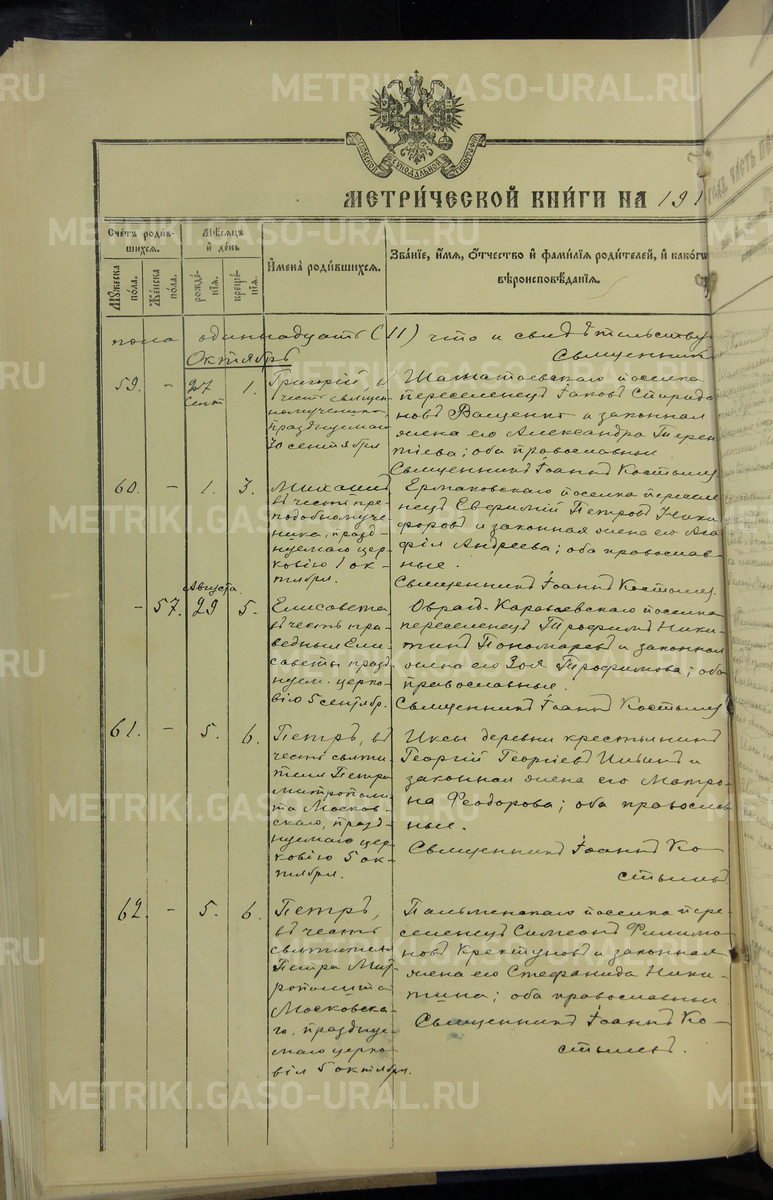 METRIKI.GASO-URAL.RU
МОСКОВСКОЙ СѴНОДАЛЬНОЙ ТИПОГРАФІИ
МЕТРИ́ЧЕСКОЙ КНИ́ГИ НА 191
Сче́тъ роди́в-
шихся.
Мꙋ́жеска
по́ла.
Же́нска
по́ла.
Мѣ́сяцъ
и҆ де́нь
рожде́-
нїя.
креще́-
нїя.
И҆мена̀ роди́вшихся.
Зва́нїе, и҆́мя, о҆́тчество и҆ фами́лїя роди́телей, и҆ како́гѡ
вѣроисповѣ́данїя.
пола одиннадцать (11) что и свидѣтельству
Священникъ
Октябрь
59. - 27 Сент 1.
Григорій, въ
честь священ-
номученика,
празднуемаго
30 сентября
Шаматаевскаго поселка
переселенецъ Іаковъ Спиридо
новъ Ващенко и законная
жена его Александра Терен
тіева; оба православные
Священникъ Іоаннъ Костылев
60. - 1. 3.
Михаилъ
въ честь пре-
подобномуче
ника, празд-
нуемаго цер-
ковію 1 ок-
тября.
Ермаковскаго поселка пересел
нецъ Евфимій Петровъ Ники
форовъ и законная жена его Ага
фія Андреева; оба православ-
ные.
Священникъ Іоаннъ Костылев
- 57. Августа 29 5.
Елисавета
въ честь пра-
ведныя Ели-
саветы празд
нуем. церко-
вію 5 сентябр.
Овраг-Караваевскаго поселка
переселенецъ Трофимъ Ники
тинъ Пономаревъ и законная
жена его Зоя Трофимова; оба
православные.
Священникъ Іоаннъ Костылев
61. - 5. 6.
Петръ, въ
честь святи-
теля Петра
митрополи-
та Москов-
скаго, празд-
нуемаго цер-
ковію 5 ок-
тября.
Иксы деревни крестьянинъ
Георгій Георгіевъ и
законная жена его Матро-
на Феодорова; оба православ
ные.
Священникъ Іоаннъ Ко-
стылевъ
62. - 5. 6.
Петръ,
въ честь
святителя
Петра Мит
рополита
Московска-
го, праздну-
емаго церко-
вію 5 октября.
поселка пере-
селенецъ Симеонъ Филимо
новъ и законная
жена его Стефанида Ники-
тина; оба православные
Священникъ Іоаннъ Ко-
стылевъ.